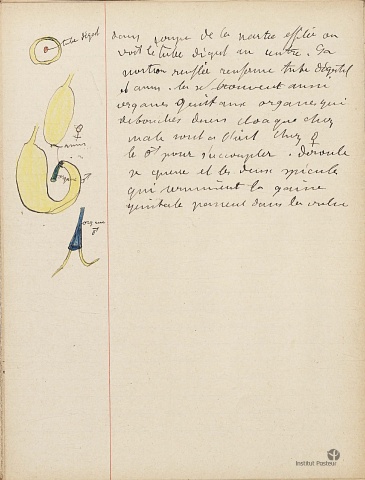 tube digest
dans coupe de la partie effilée on
voit le tube digest au centre. Sa
portion renflée renferme tube digestif
et anus. Là se trouvent aussi
organes génitaux organes qui
débouchent dans cloaque chez
male sont chez ♀
le ♂ pour s'accoupler. déroule
sa queue et les deux spicules
qui terminent la gaine
génitale passent dans la vulve
♀
anus
organe ♂
organe
♂
Institut Pasteur